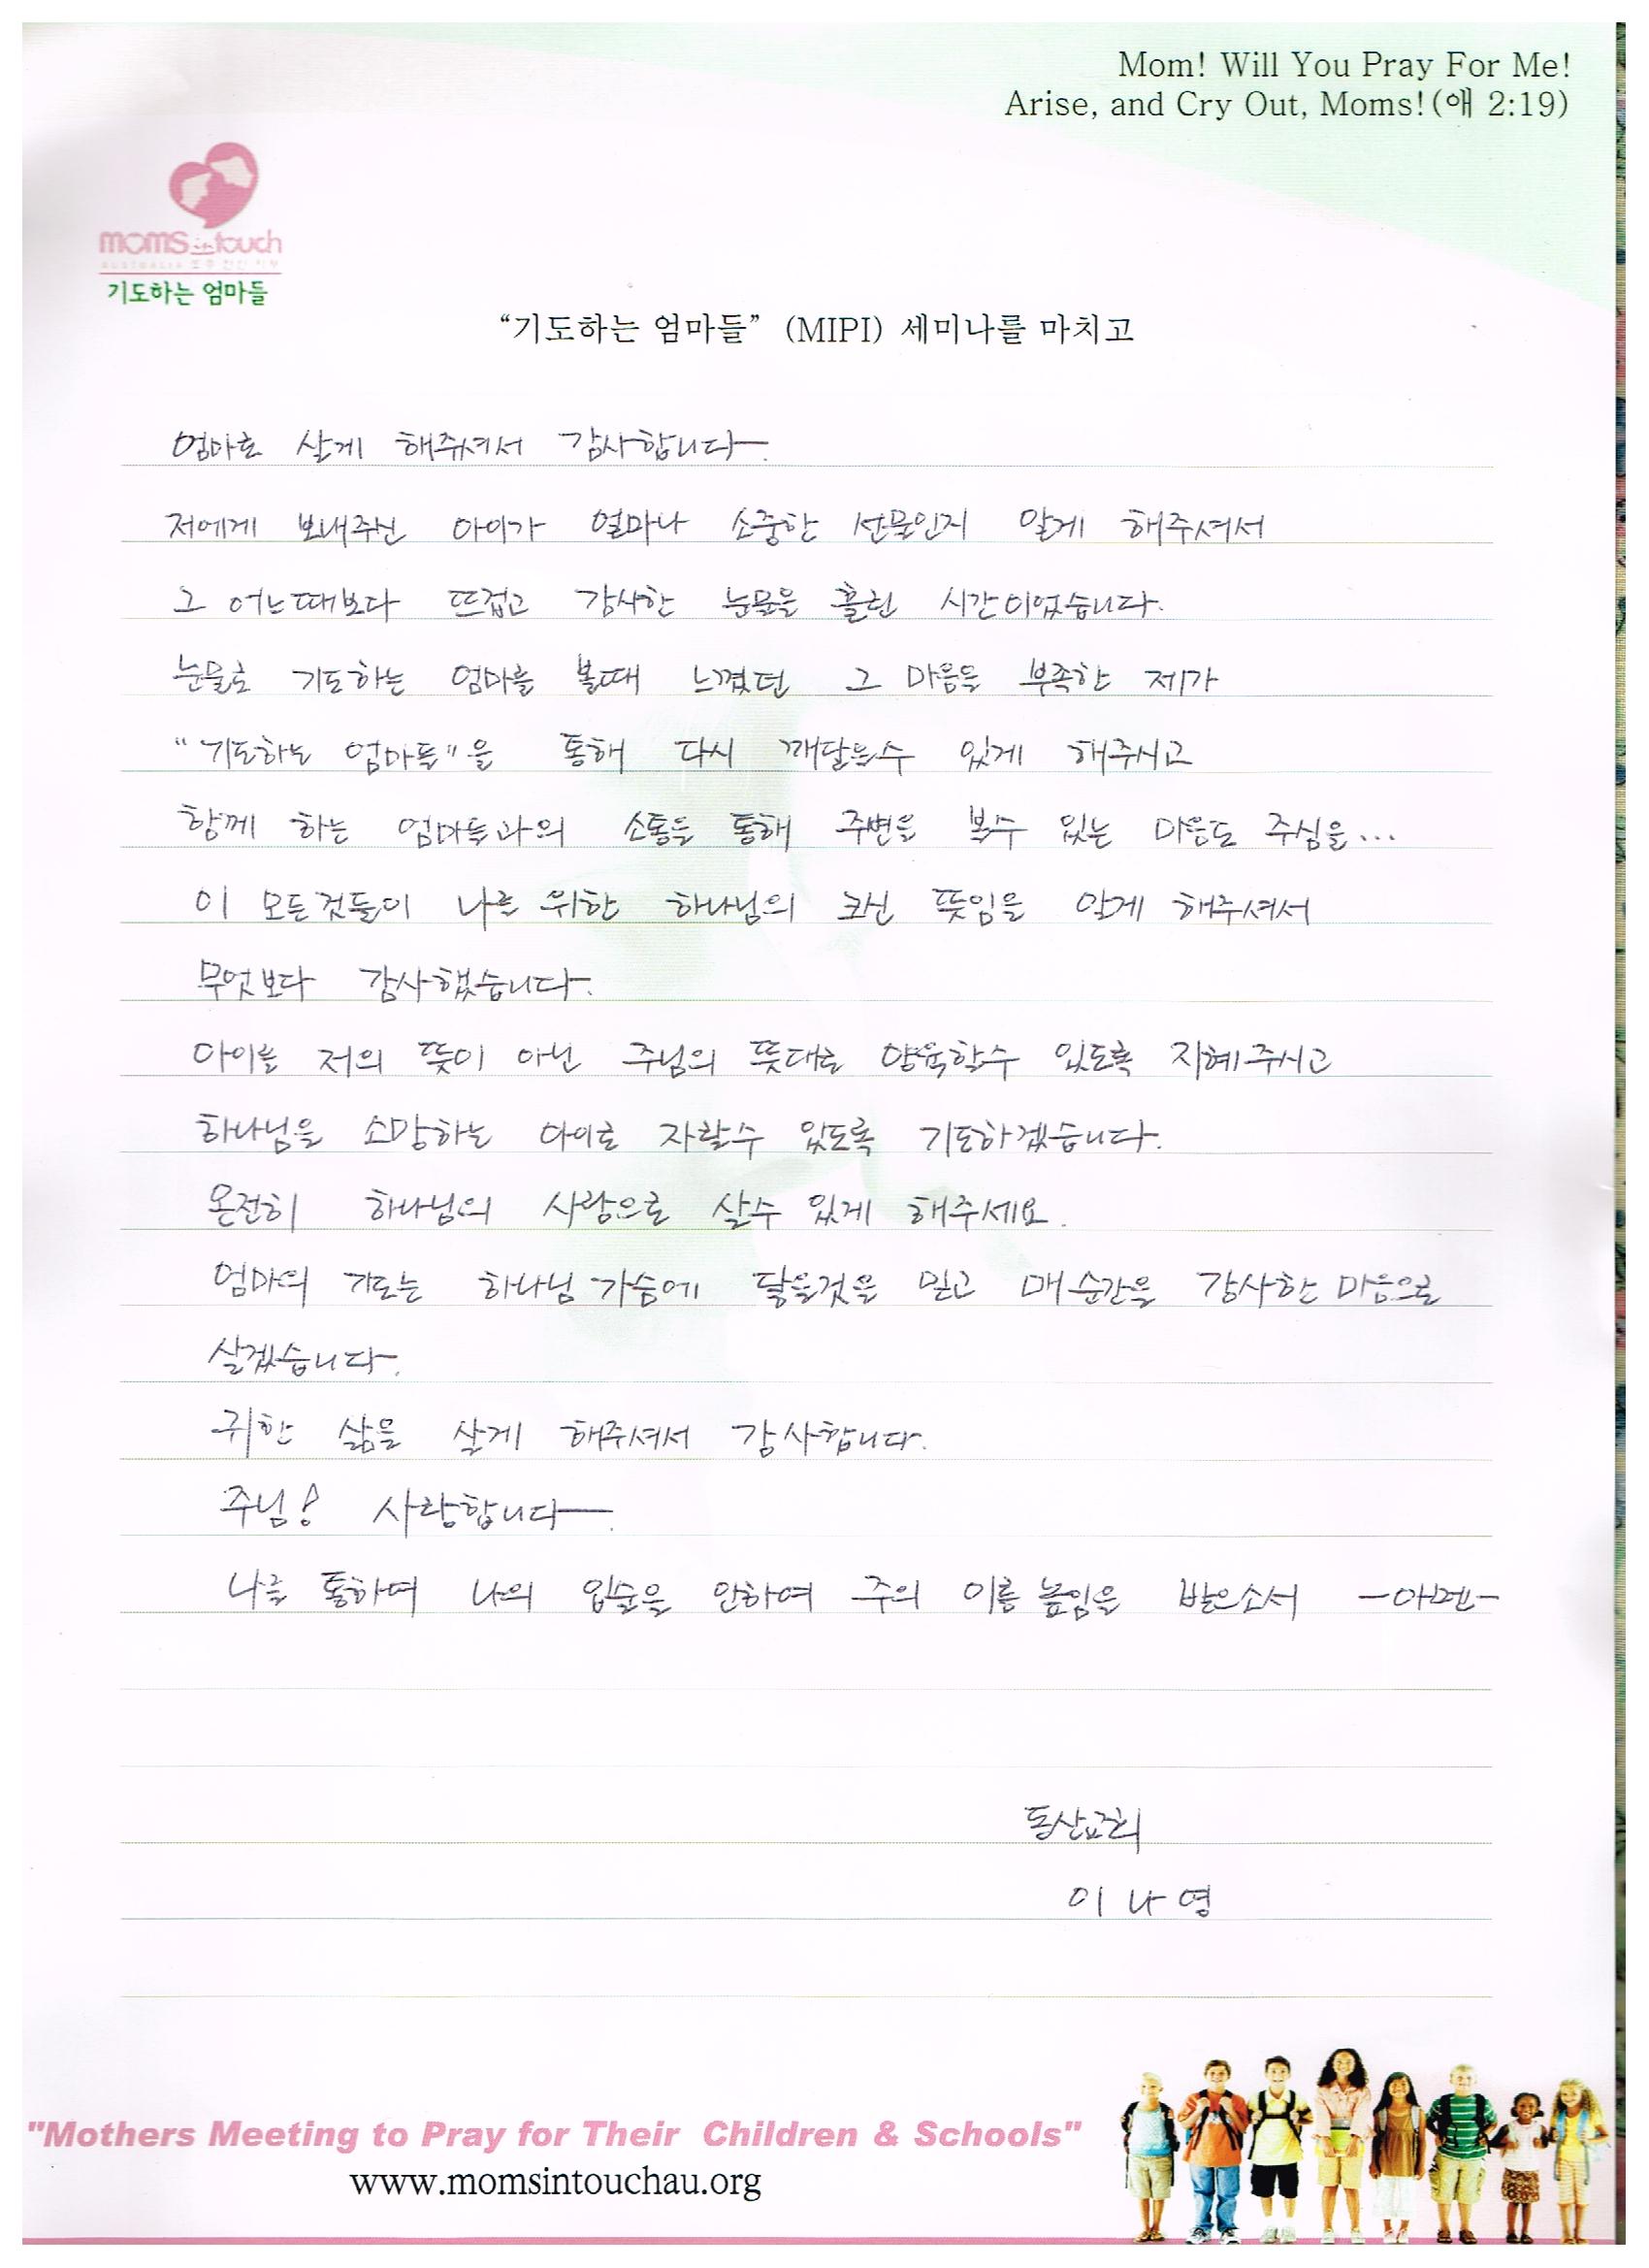 Mom! Will You Pray For Me!
Arise, and Cry Out, Moms!(애 2:19)
moms in touch
AUSTRALIA 호주 한인 지부
기도하는 엄마들
“기도하는 엄마들” (MIPI) 세미나를 마치고
엄마로 살게 해주셔서 감사합니다.
저에게 보내주신 아이가 얼마나 소중한 선물인지 알게 해주셔서
그 어느때보다 뜨겁고 감사한 눈물을 흘린 시간이었습니다.
눈물로 기도하는 엄마를 볼때 느꼈던 그 마음을 부족한 제가
"기도하는 엄마들"을 통해 다시 깨달을수 있게 해주시고
함께 하는 엄마들과의 소통을 통해 주변을 볼수 있는 마음도 주심을...
이 모든것들이 나를 위한 하나님의 크신 뜻임을 알게 해주셔서
무엇보다 감사했습니다.
아이를 저의 뜻이 아닌 주님의 뜻대로 양육할수 있도록 지혜주시고
하나님을 소망하는 아이로 자랄수 있도록 기도하겠습니다.
온전히 하나님의 사랑으로 살수 있게 해주세요.
엄마의 기도는 하나님 가슴에 닿을것을 믿고 매 순간을 감사한 마음으로
살겠습니다.
귀한 삶을 살게 해주셔서 감사합니다.
주님! 사랑합니다.
나를 통하여 나의 입술을 인하여 주의 이름 높임을 받으소서 -아멘-
동산교회
이 나 영
"Mothers Meeting to Pray for Their Children & Schools"
www.momsintouchau.org